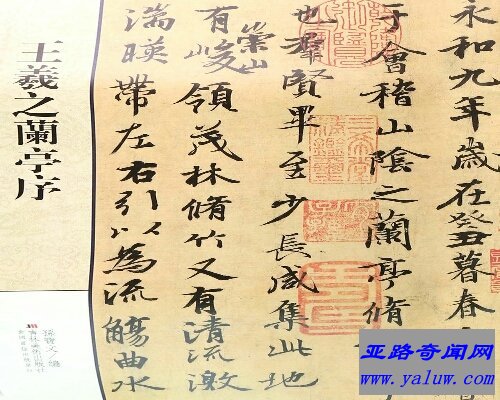 永和九年歲在癸丑暮春
于會稽山陰之蘭亭脩
也羣賢畢至少長咸集此地
有崇山峻領茂林脩竹又有清流激
湍暎帶左右引以為流觴曲水
王羲之蘭亭序
孫寶文 編
亚路奇闻网
www.yaluw.com